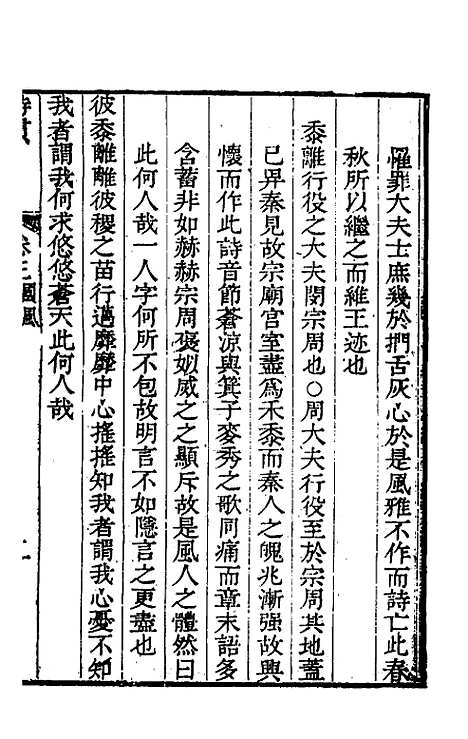 罹罪大夫士庶幾於捫舌灰心於是風雅不作而詩亡此春
秋所以繼之而維王迹也
黍離行役之大夫閔宗周也○周大夫行役至於宗周其地蓋
已畀秦見故宗廟宮室盡為禾黍而秦人之兆漸强故興
懷而作此詩音節蒼涼與箕子麥秀之歌同痛而章末語多
含蓄非如赫赫宗周褒姒烕之之顯斥故是風人之體然曰
此何人哉一人字何所不包故明言不如隱言之更盡也
彼黍離離彼稷之苗行邁靡靡中心搖搖知我者謂我心憂不知
我者謂我何求悠悠蒼天此何人哉
卷三國風